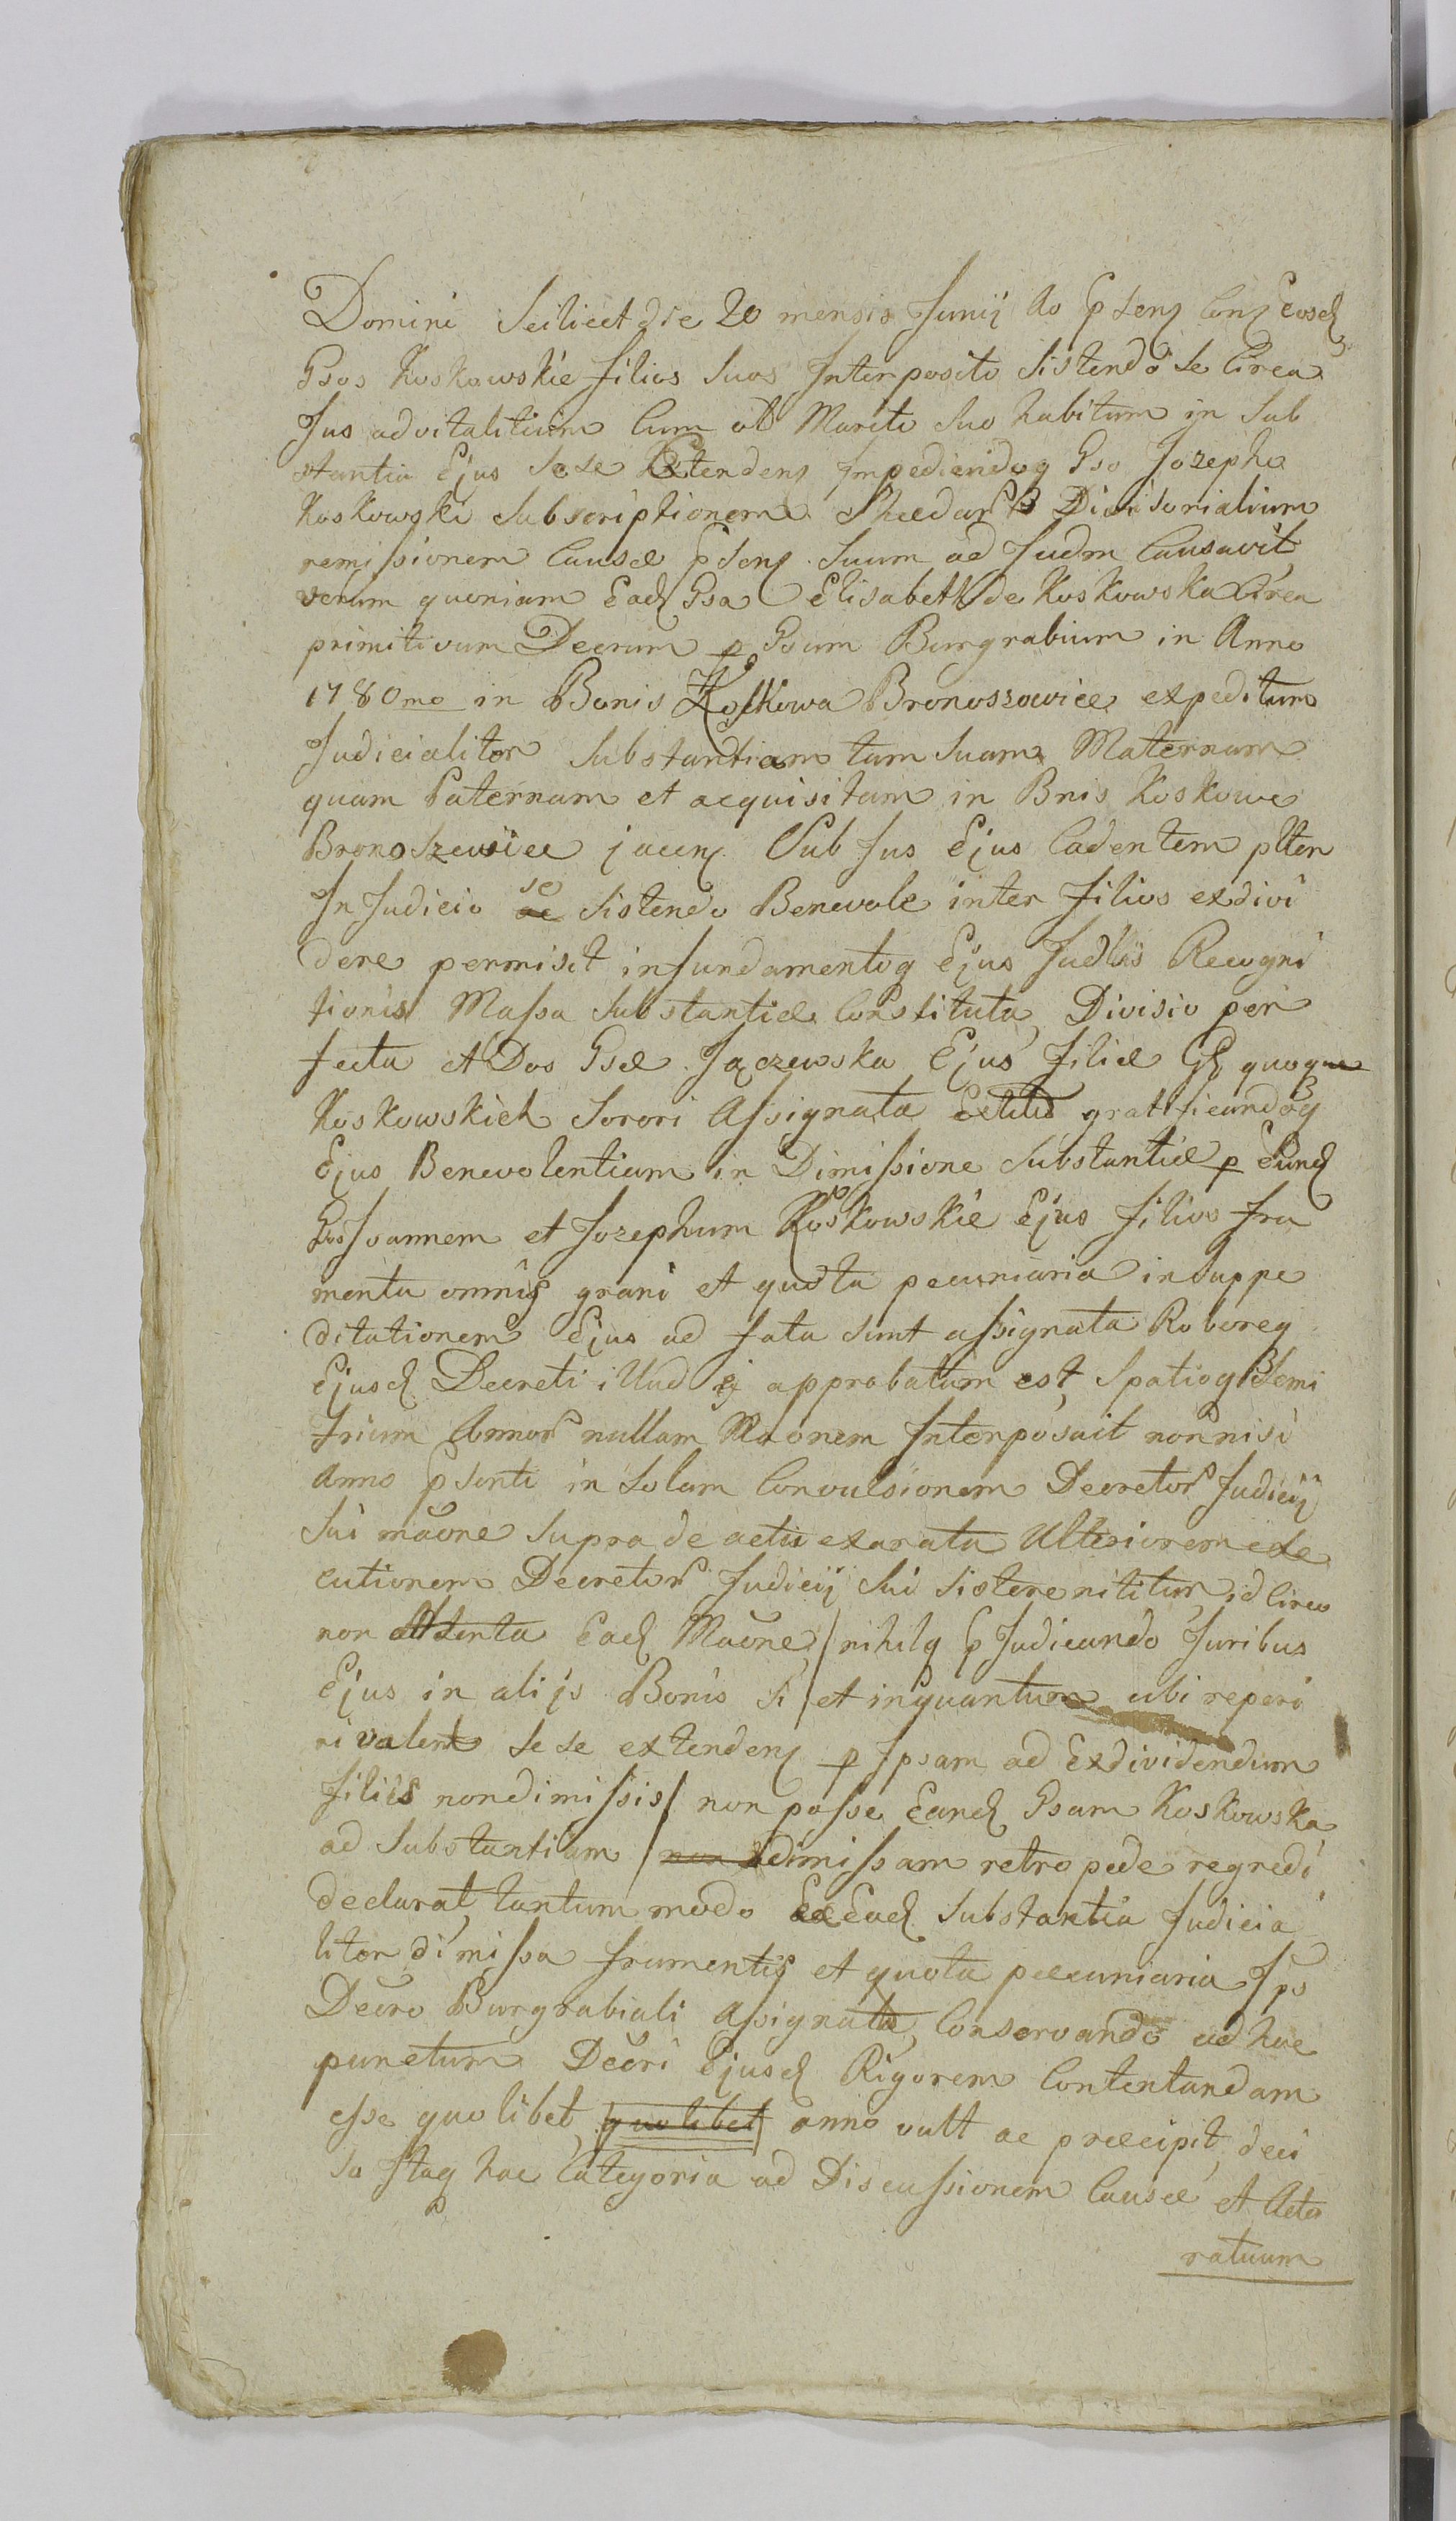 Domini Scilicet die 20 mensis Junij Ao psenj conj Eosd
Gsos Koskowskie filios Suos Interposito Sistendo Se Circa
Jus advitalitium Cum olt Marito Suo habitum in Sub
stantia Ejus Sese Extendenj Impediendoq Gso Jozepho
Koskowski Subscriptionem Shedar Divisorialium
remissionem Causæ psenj Suum ad Judm Causavit
verum quoniam Ead Gsa Elisabeth de Koskowska Circa
primitivum Decrum p Gsum Burgrabium in Anno
1780mo in Bonis Koskowa Bronoszowice expeditum
Judicialiter Substantiam tam Suam Maternam
quam Paternam et acquisitam in Bnis Koskowe
Bronoszewice jacenj Sub Jus Ejus Cadentem pltter
In Judicio se ac Sistendo Benevole inter filios exdivi
dere permisit infundamentoq Ejus Judlis Recogni
tionis Massa Substantiæ Constituta, Divisio per
fecta et Dos Gsæ Jączewska Ejus filiæ G quoque
Koskowskich Sorori Assignata Extitit gratificandoq
Ejus Benevolentiam in Dimissione Substantiæ p Eund
Gsos Joannem et Jozephum Koskowskie Ejus filios fru
menta omnis grani et quota pecuniaria insuppe
ditationem Ejus ad fata sunt assignata Roboreq
Ejusd Decreti illud ej approbatum est, Spatioq Semi
trium Annor nullam Maonem Interposuit nonnisi
Anno psenti in Solam Convulsionem Decretor Judicij
Sui maone Supra de actu exarata Ulteriorem exe
cutionem Decretor Judicij Sui Sistere nititur, id Circo
non Attenta Ead Maone / nihilq pJudicando Juribus
Ejus in alijs Bonis Si et inquantum ubi reperi
ri valent Sese extendenj p Ipsam ad Exdividendum
filiis nondimissis / non posse Eand Gsam Koskowska
ad Substantiam / non dimissam retro pede regredi
declarat, tantum modo Ex Ead Substantia Judicia
liter dimissa frumentis et quota pæcuniaria Ips
Decro Burgrabiali Assignata, Conservando ad hoc
punctum Decri Ejusd Rigorem Contentandam
esse quolibet quolibet anno vult ac præcipit, deci
sa Itaq hac Categoria ad Discussionem Causæ et Acto
ratuum